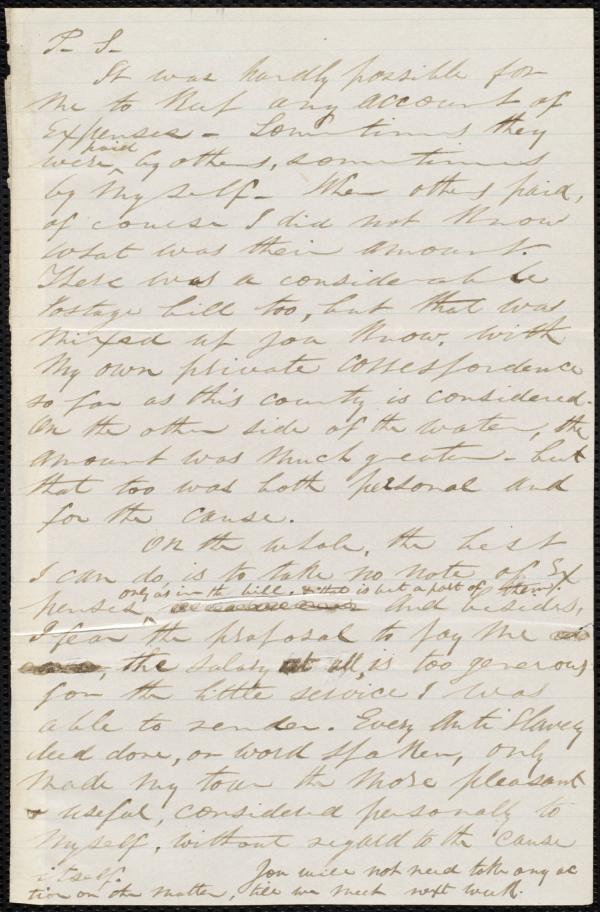 P. S.
It was hardly possible for
me to keep any account of
Expenses - Sometimes they
were paid by others, sometimes
by myself - When others paid,
of course I did not know
what was their amount.
There was a considerable
Postage bill too, but that was
mixed up you know, with
my own private correspondence
so far as this county is considered.
On the other side of the water, the
amount was much greater - but
that too was both personal and
for the cause.
On the whole, the best
I can do, is to take no note of Ex
penses only as in the bill, & that is but a part of them. and besides,
I fear the proposal to pay me
the salary at all, is too generous
for the little service I was
able to render. Every Anti Slavery
deed done, or word spoken, only
made my tour the more pleasant
& useful, considered personally to
myself, without regard to the cause
itself. You will not need take any ac
tion on the matter, till we meet next week.